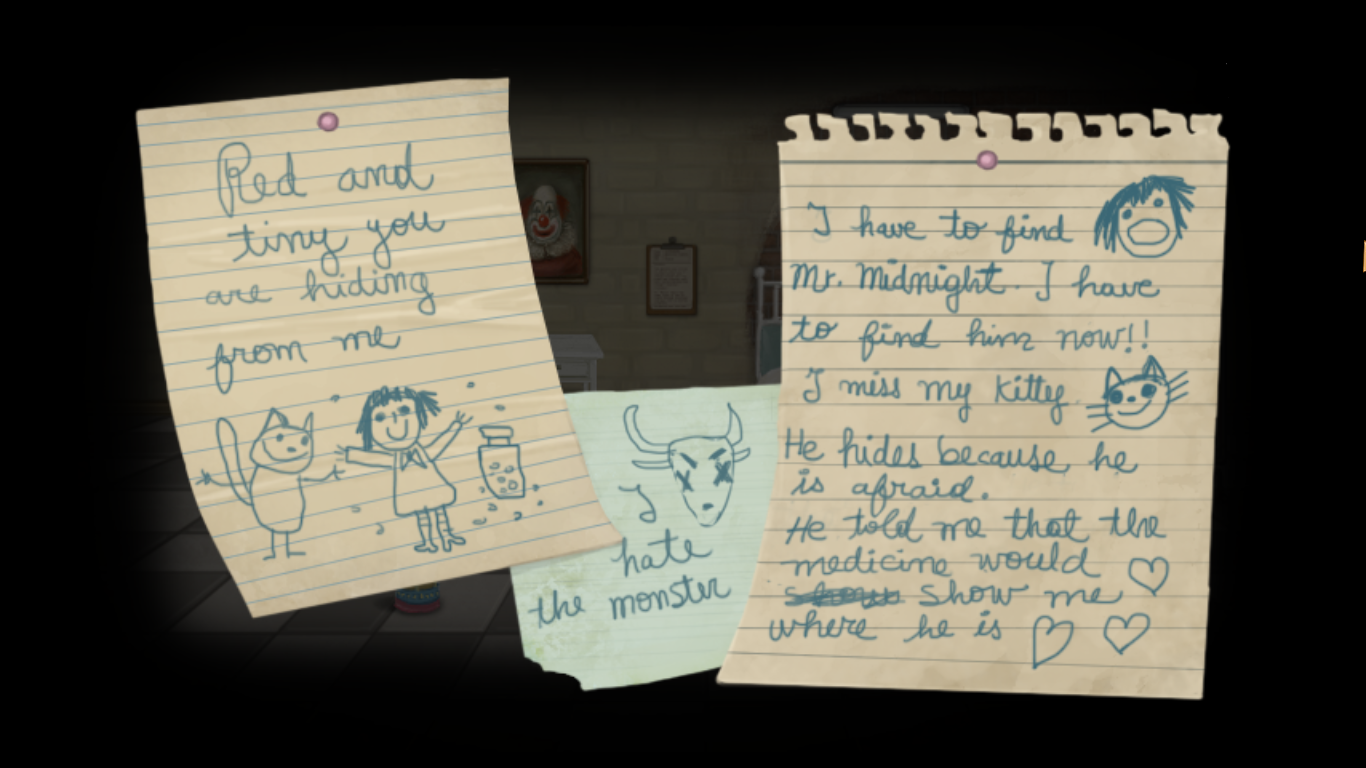 Red and
tiny you
are hiding
from me
I
hate
the monster
I have to find
Mr. Midnight. I have
to find him now!!
I miss my Kitty
He hides because he
is afraid.
He told me that the
medicine would
show me
where he is